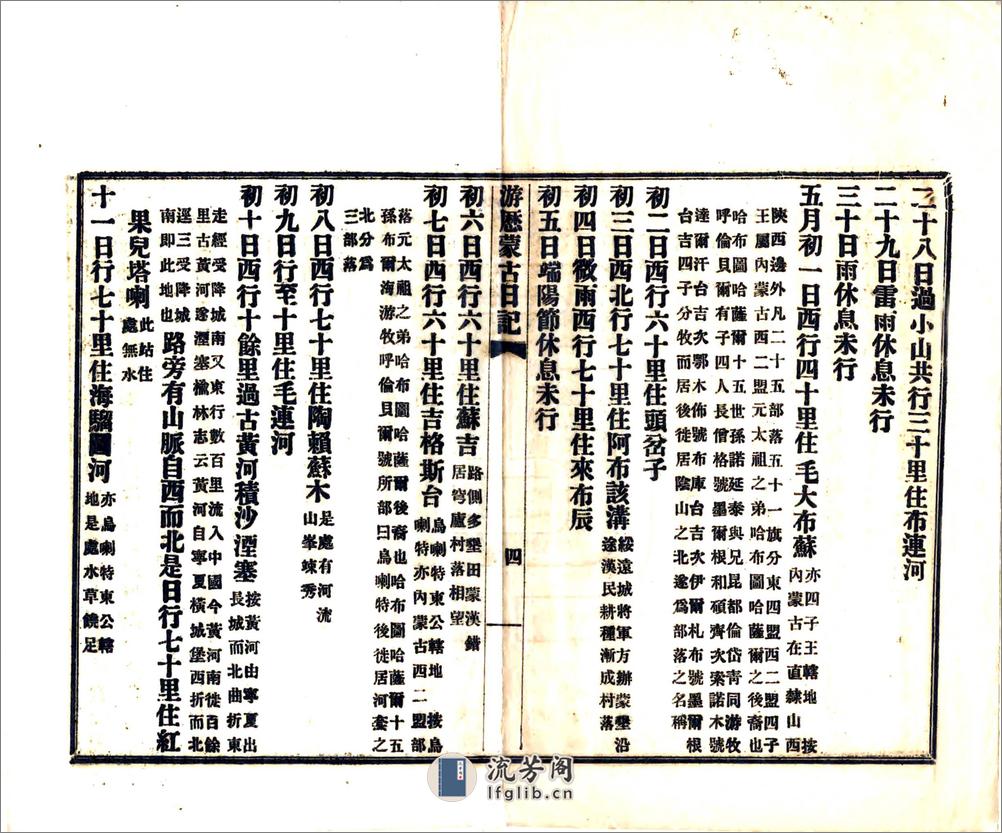 二十八日過小山共行三十里住布連河
二十九日雷雨休息未行
三十日雨休息未行
五月初一日西行四十里住毛大布蘇
亦四子王轄地 按
內蒙古在直隸山西
陝西邊外凡二十五部落五十一旗分東四盟西二盟四子
王屬內蒙古西二盟元太祖之弟哈布圖哈薩爾之後裔也
哈布圖哈薩爾十五世孫諾延泰與兄昆都倫岱青同游牧
呼倫貝爾有子四人長僧格號墨爾根和碩齊次索諾木號
達爾汗台吉次鄂木佈號布庫台吉次伊爾札布號墨爾根
台吉四子分牧而居後徙居陰山之北遂爲部落之名稱
初二日西行六十里住頭岔子
初三日西北行七十里住阿布該溝
綏遠城將軍方辦蒙墾沿
途漢民耕種漸成村落
初四日微雨西行七十里住來布辰
初五日端陽節休息未行
游歷蒙古日記
四
初六日西行六十里住蘇吉
路側多墾田蒙漢錯
居穹廬村落相望
初七日西行六十里住吉格斯台
烏喇特東公轄地 按烏
喇特亦內蒙古西二盟部
落元太祖之弟哈布圖哈薩爾後裔也哈布圖哈薩爾十五
孫布爾海游牧呼倫貝爾號所部曰烏喇特後徙居河套之
北分爲
三部落
初八日西行七十里住陶賴蘇木
是處有河流
山峯竦秀
初九日行至十里住毛連河
初十日西行十餘里過古黃河積沙湮塞
按黃河由寧夏出
長城而北曲折東
走經受降城南又東行數百里流入中國今黃河南徙百餘
里古黃河遂湮塞楡林志云黃河自寧夏橫城堡西折而北
逕三受降城
南即此地也
路旁有山脈自西而北是日行七十里住紅
果兒塔喇
此站住
處無水
十一日行七十里住海騮圖河
亦烏喇特東公轄
地是處水草饒足
流芳阁
lfglib.cn